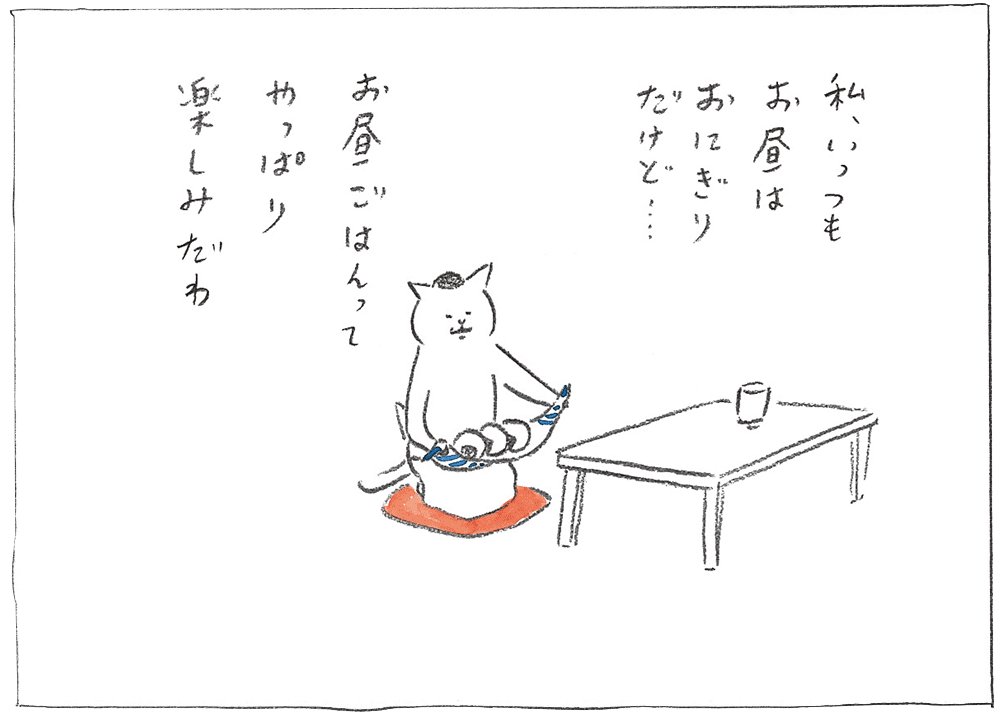 私、いっつも
お昼は
おにぎり
だけど‥‥
お昼ごはんって
やっぱり
楽しみだわ